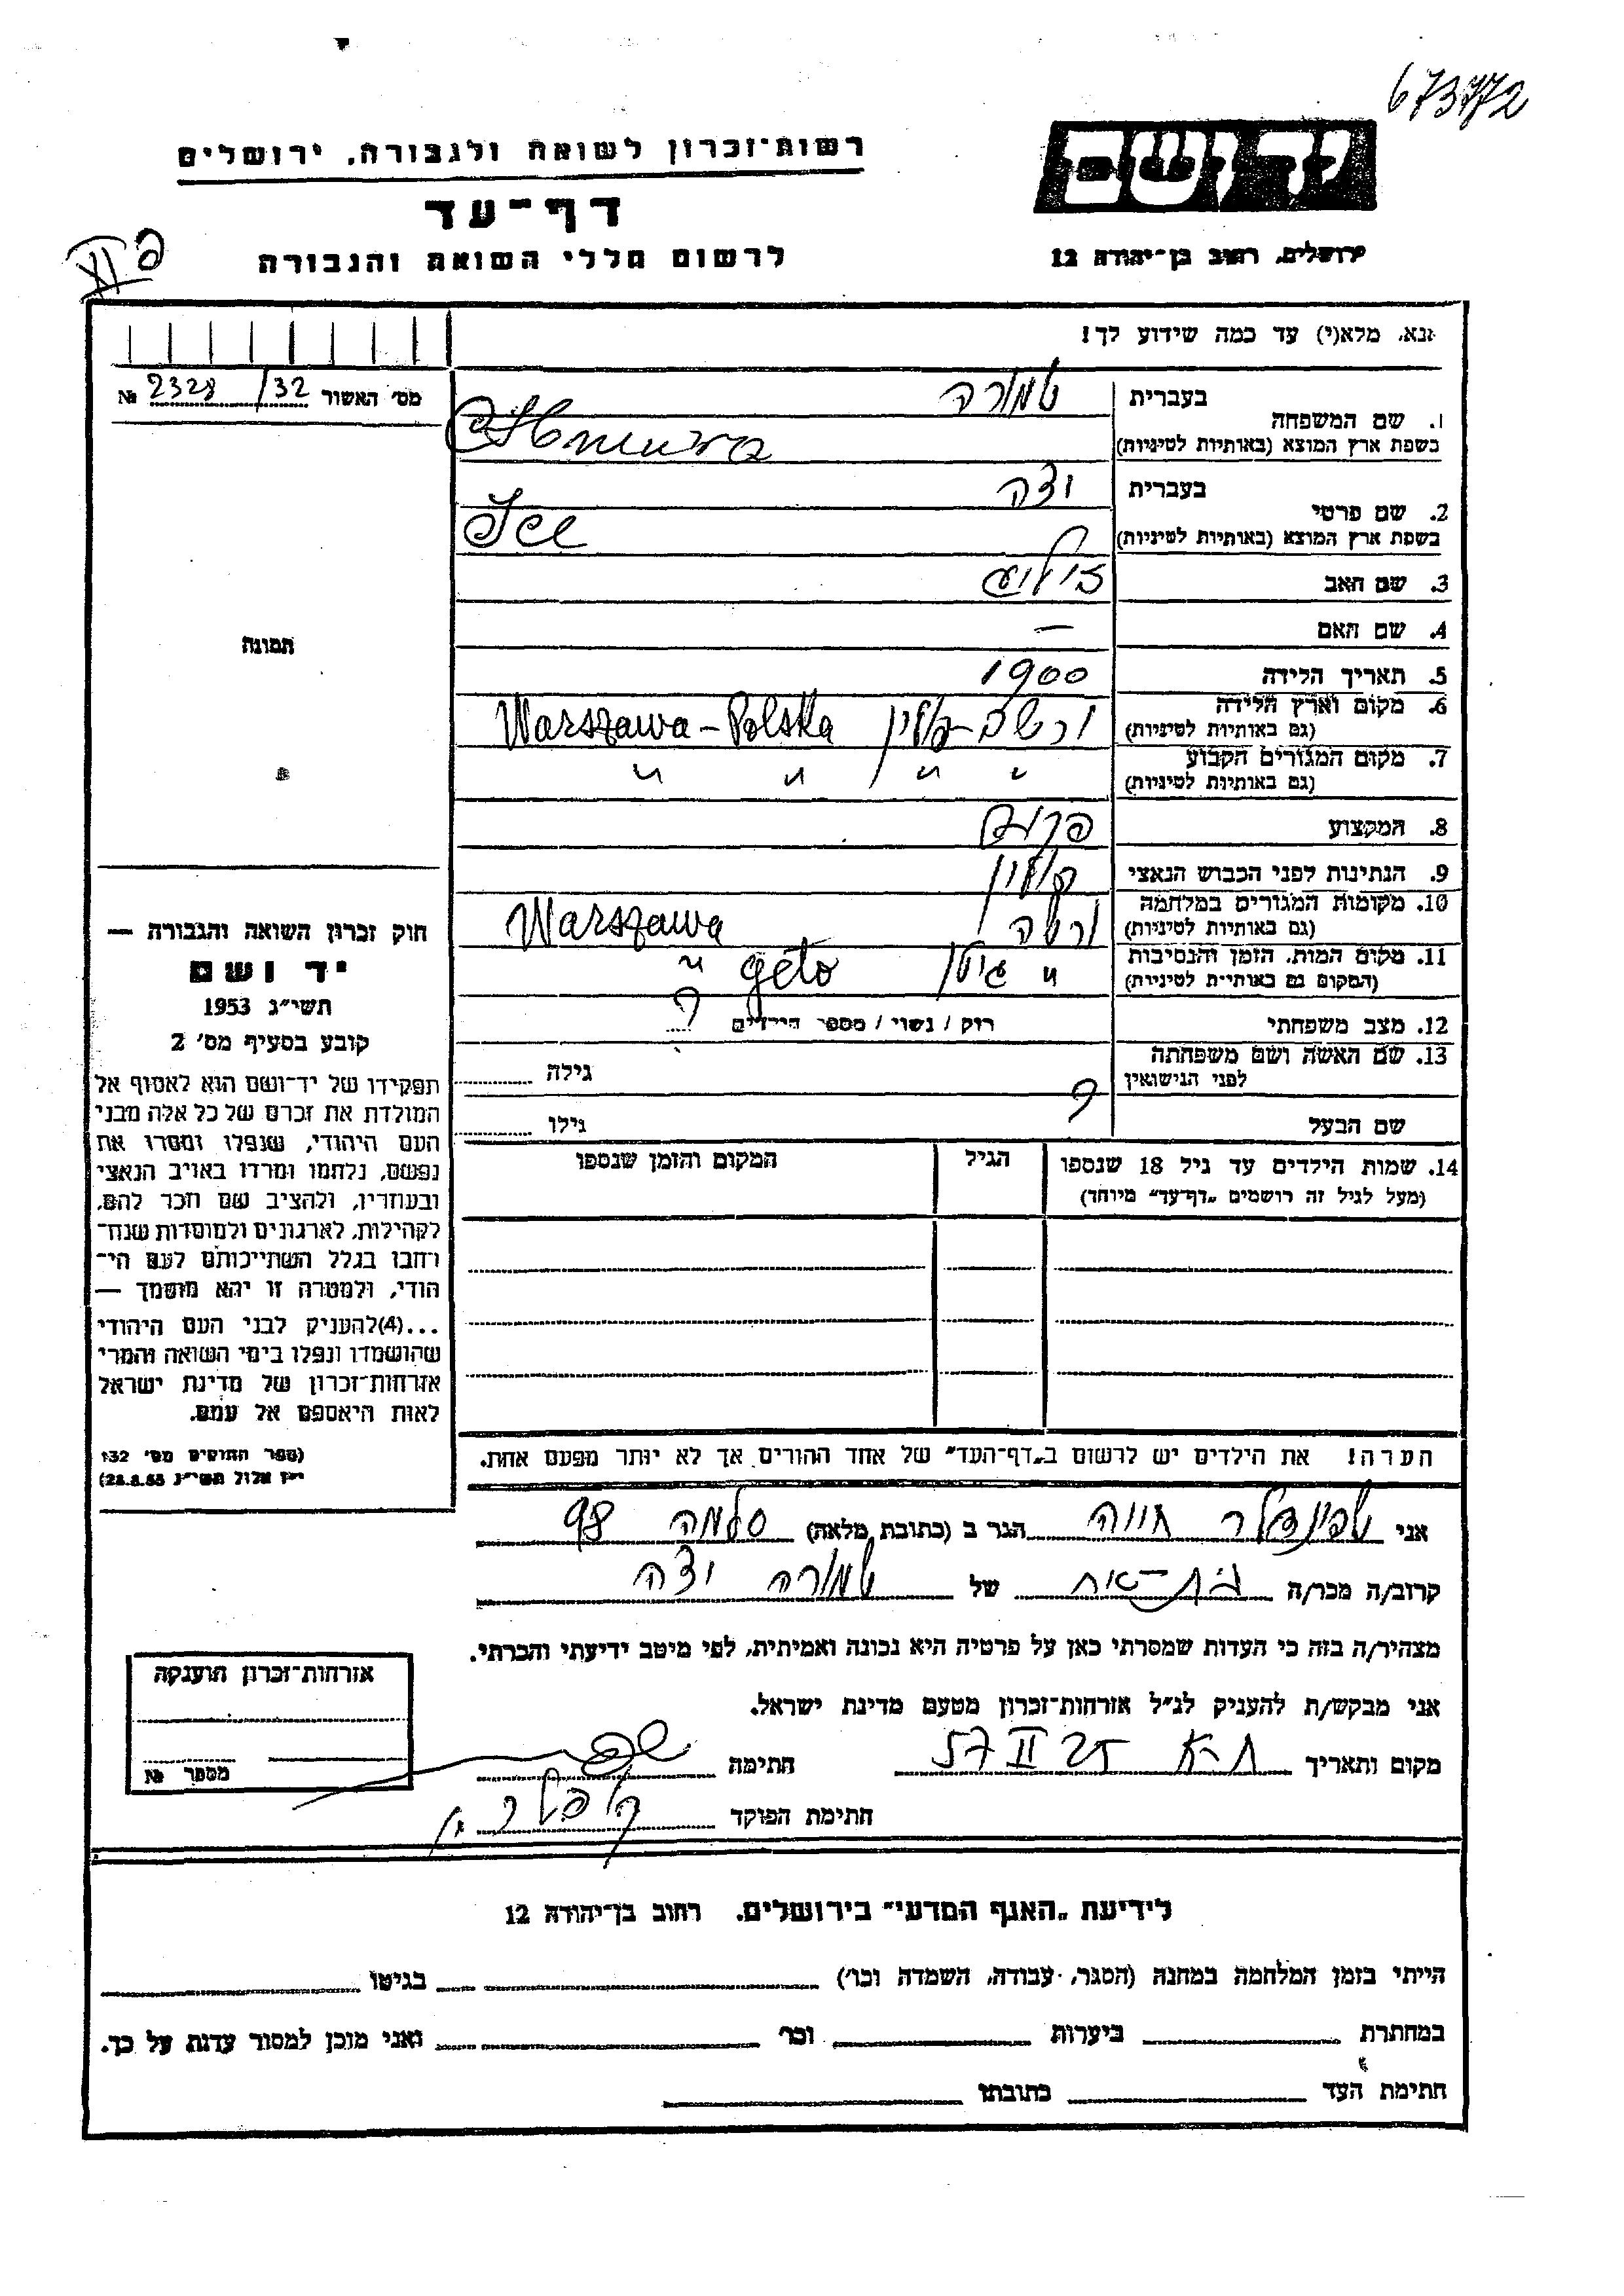 673772
יד ושם
ירושלים, רחוב בן־יהודה 12
רשות־זכרון לשואה ולגבורה, ירושלים
דף־עד
לרשום חללי השואה והגבורה
נא, מלא(י) עד כמה שידוע לך!
מס' האשור 32/ 2328 №
1. שם המשפחה
בעברית
בשפת ארץ המוצא (באותיות לטיניות)
2. שם פרטי
בעברית
בשפת ארץ המוצא (באותיות לטיניות)
3. שם האב
4. שם האם —
5. תאריך הלידה 1900
6. מקום וארץ הלידה
(גם באותיות לטיניות)
ורשה – פולין Warszawa – Polska
7. מקום המגורים הקבוע
(גם באותיות לטיניות)
" " " "
8. המקצוע
9. הנתינות לפני הכבוש הנאצי פולין
10. מקומות המגורים במלחמה
(גם באותיות לטיניות)
ורשה Warszawa
11. מקום המות, הזמן והנסיבות
(המקום גם באותיות לטיניות)
" גיטו geto "
12. מצב משפחתי רוק / נשוי / מספר הילדים ?
13. שם האשה ושם משפחתה
לפני הנישואין
גילה
שם הבעל ? גילו
14. שמות הילדים עד גיל 18 שנספו
(מעל לגיל זה רושמים „דף־עד" מיוחד)
הגיל
המקום והזמן שנספו
הערה! את הילדים יש לרשום ב„דף־העד" של אחד ההורים אך לא יותר מפעם אחת.
תמונה
חוק זכרון השואה והגבורה —
יד ושם
תשי"ג 1953
קובע בסעיף מס' 2
תפקידו של יד־ושם הוא לאסוף אל
המולדת את זכרם של כל אלה מבני
העם היהודי, שנפלו ומסרו את
נפשם, נלחמו ומרדו באויב הנאצי
ובעוזריו, ולהציב שם וזכר להם,
לקהילות, לארגונים ולמוסדות שנח־
רבו בגלל השתייכותם לעם הי־
הודי, ולמטרה זו יהא מוסמך —
...(4) להעניק לבני העם היהודי
שהושמדו ונפלו בימי השואה והמרי
אזרחות־זכרון של מדינת ישראל
לאות היאספם אל עמם.
(ספר החוקים מס' 132
י"ז אלול תשי"ג 28.8.53)
אני שפינדלר חוויה הגר ב (כתובת מלאה) סלמה 98
קרוב/ה מכר/ה בת-אח של
מצהיר/ה בזה כי העדות שמסרתי כאן על פרטיה היא נכונה ואמיתית, לפי מיטב ידיעתי והכרתי.
אני מבקש/ת להעניק לנ"ל אזרחות־זכרון מטעם מדינת ישראל.
מקום ותאריך ת-א 25 II 57 חתימה
חתימת הפוקד
אזרחות־זכרון הוענקה
מספר №
לידיעת „האגף המדעי" בירושלים, רחוב בן־יהודה 12
הייתי בזמן המלחמה במחנה (הסגר, עבודה, השמדה וכו') בגיטו
במחתרת ביערות וכו' ואני מוכן למסור עדות על כך.
חתימת העד כתובתו